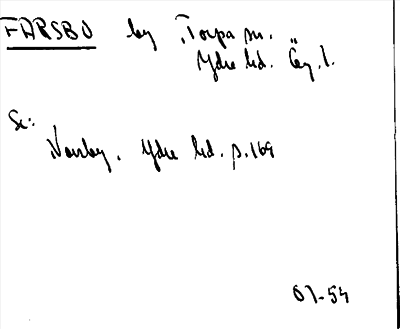 FARSBO by Torpa sn.
Ydre hd. Ög. l.
Se:
Norrby, Ydre hd. p. 169
01-54